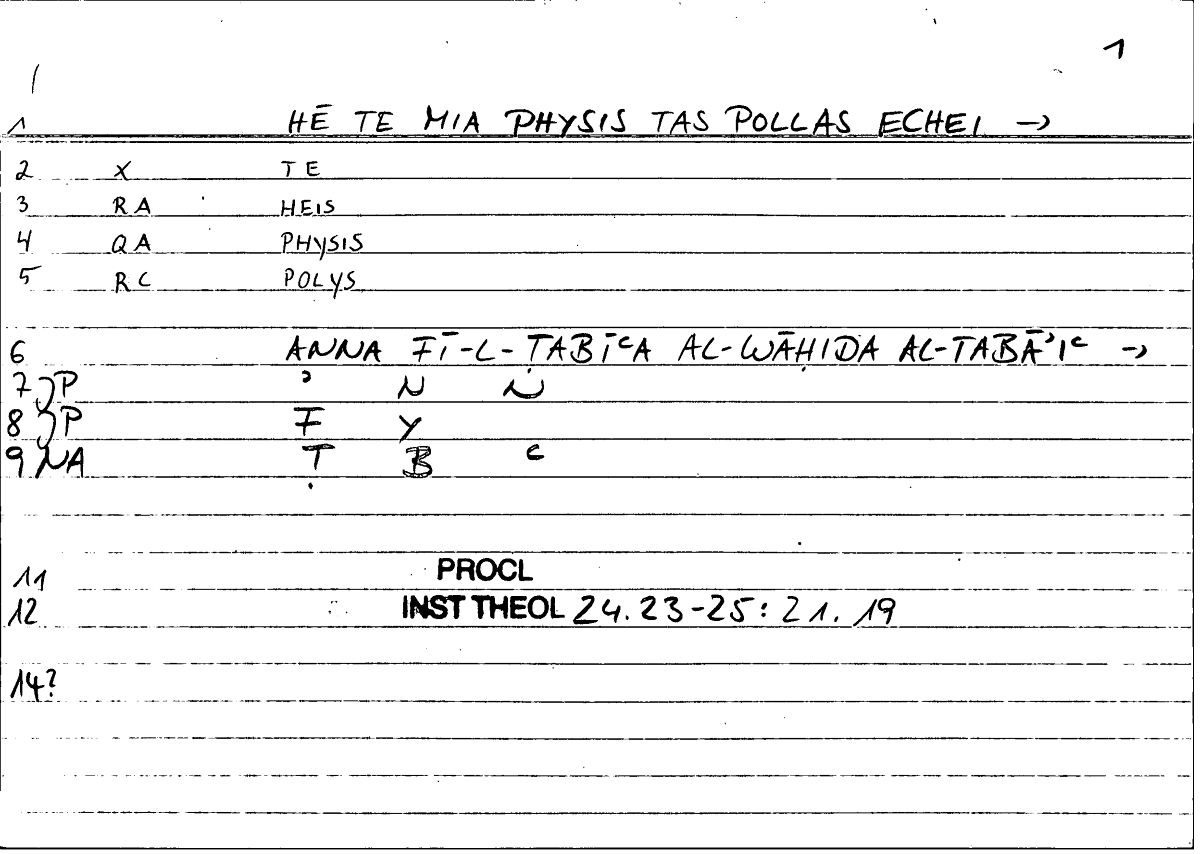 1
1 HĒ TE MIA PHYSIS TAS POLLAS ECHEI →
2 X TE
3 RA HEIS
4 QA PHYSIS
5 RC POLYS
6 ANNA FĪ-L-ṬABĪʿA AL-WĀḤIDA AL-ṬABĀʾIʿ →
7 JP ʾ N N
8 JP F Y
9 NA Ṭ B ʿ
11 PROCL
12 INST THEOL 24.23-25:21.19
14?